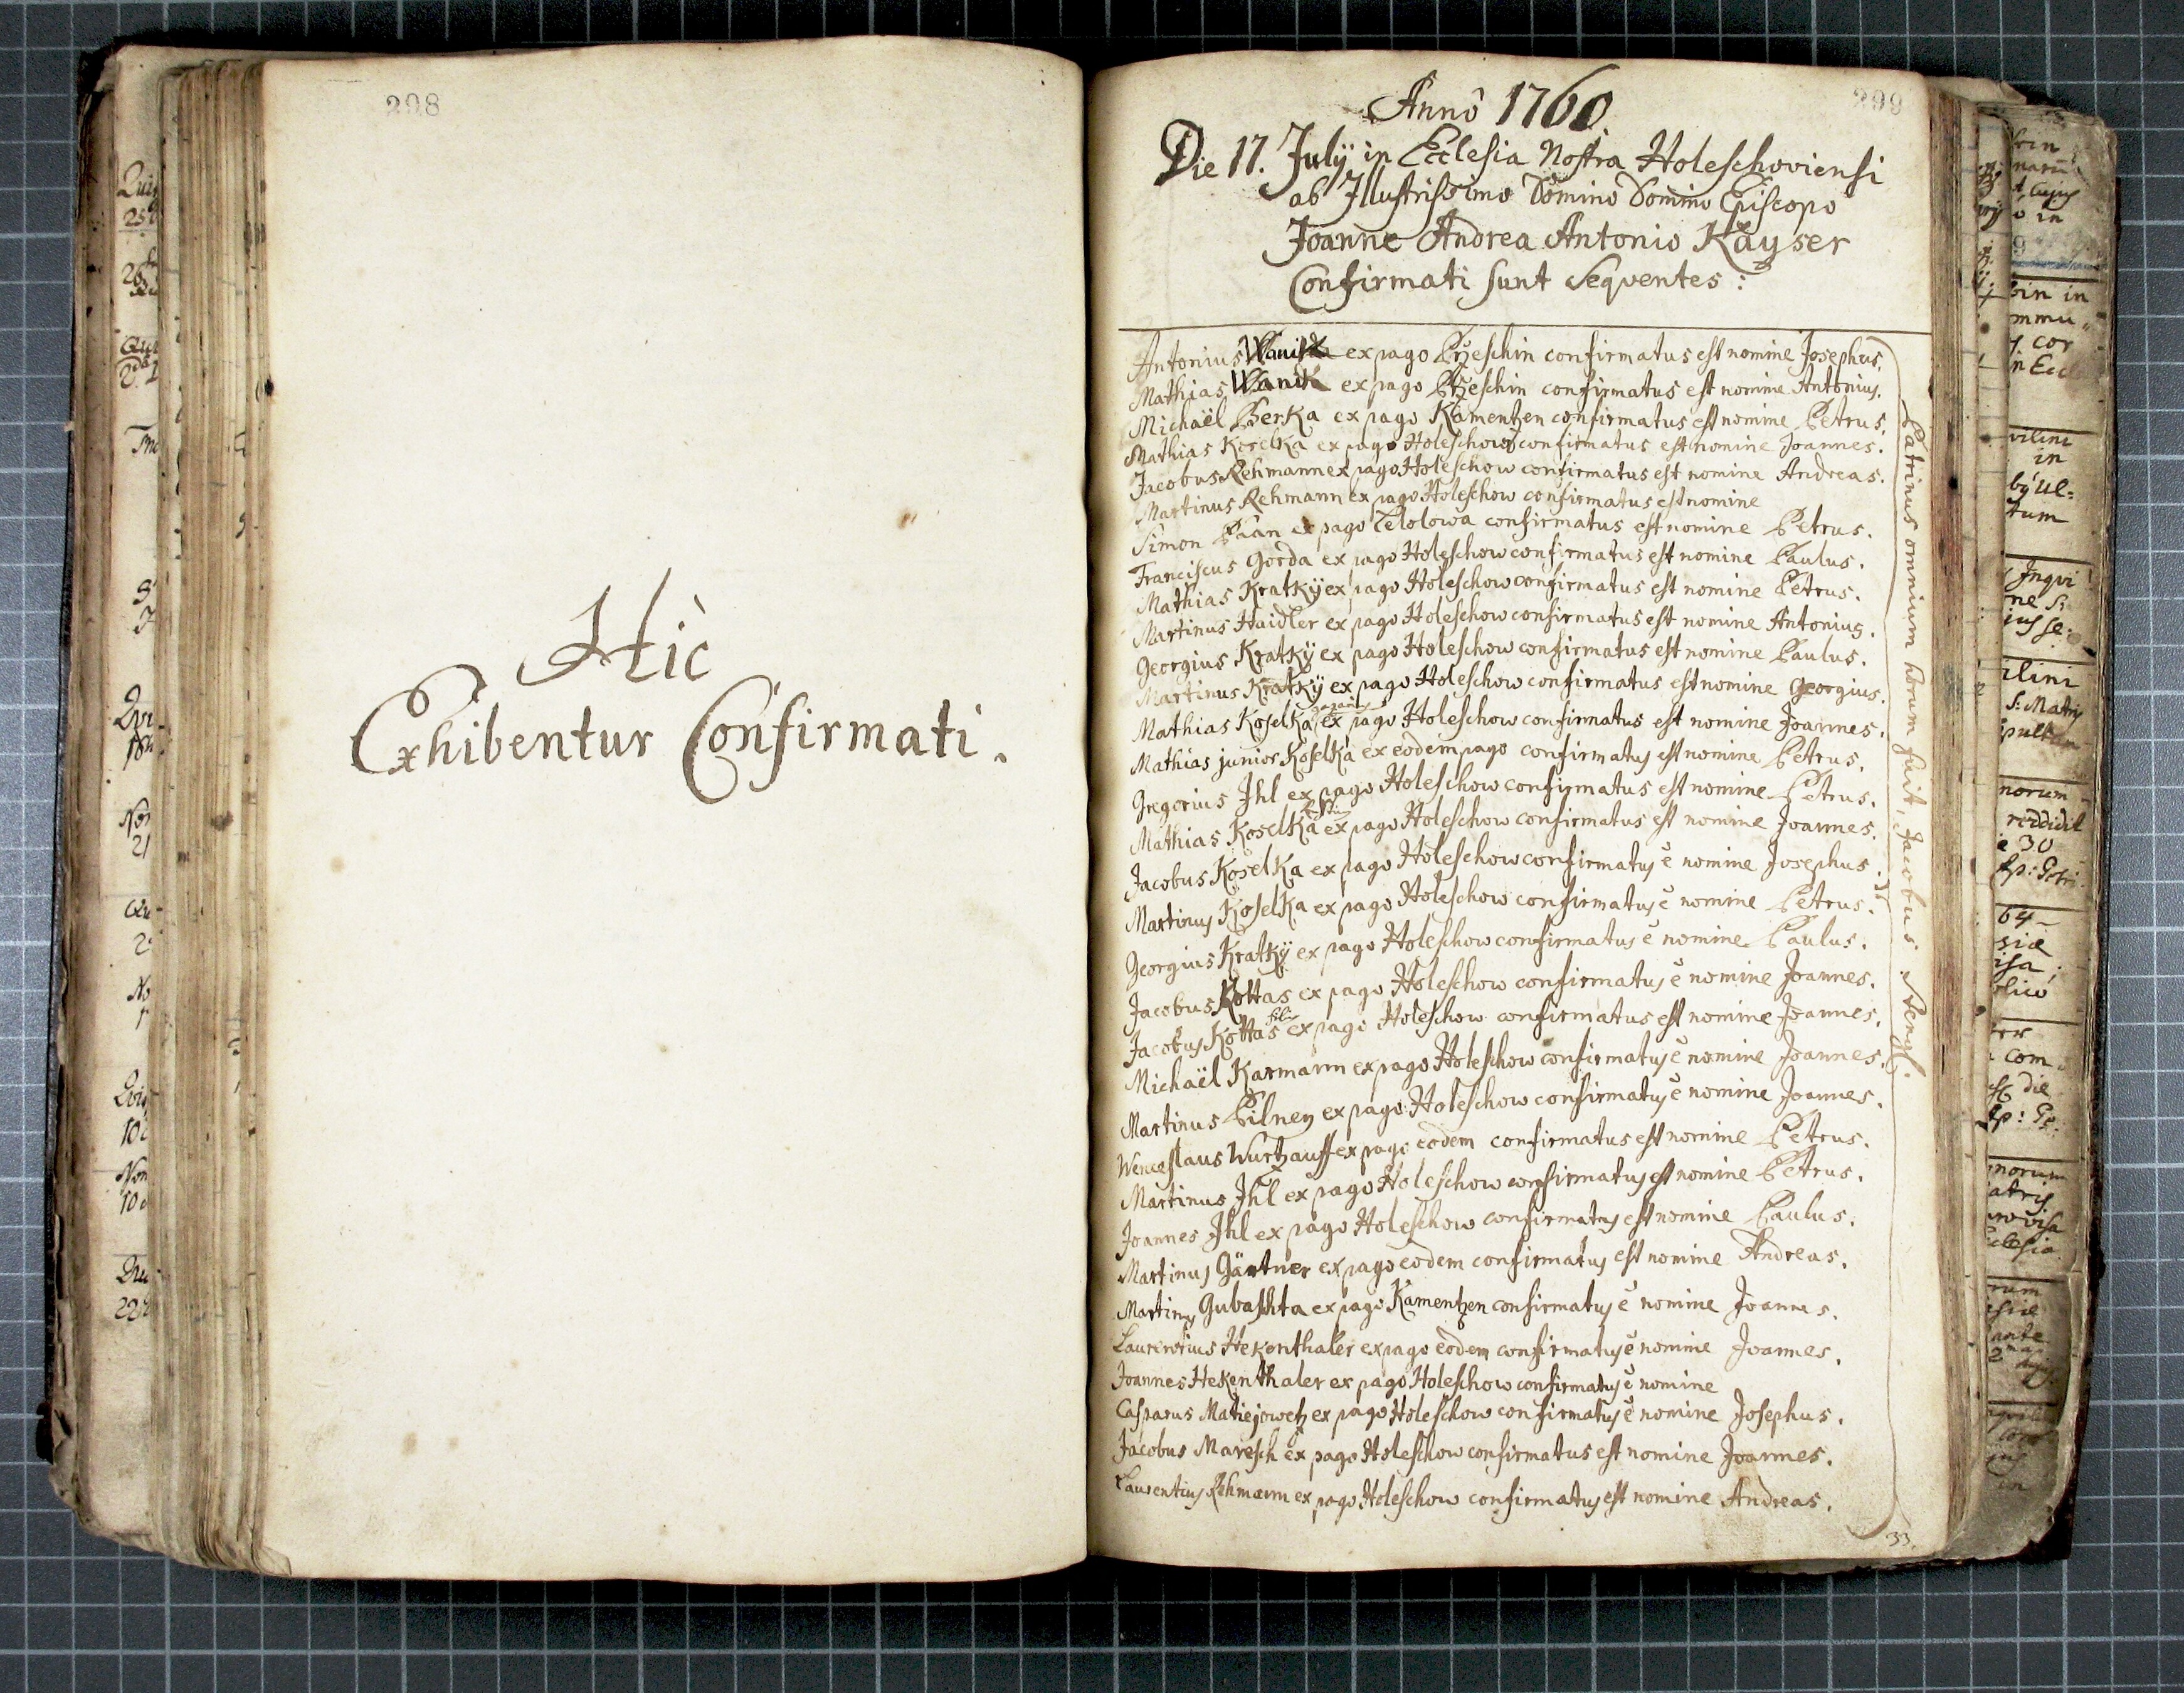 298
Hic
Exhibentur Confirmati.
299
Anno 1760
Die 17. Julÿ in Ecclesia Nostra Holeschoviensi
ab Illustrissimo Domino Domino Episcopo
Joanne Andrea Antonio Kaÿser
Confirmati sunt Seqventes:
Antonius Wanik ex pago Przeschin confirmatus est nomine Josephus.
Mathias Wanik ex pago Przeschin confirmatus est nomine Antonius.
Michaël Berka ex pago Kamentzen confirmatus est nomine Petrus.
Mathias Koselka ex pago Holeschow confirmatus est nomine Joannes.
Jacobus Rehmann ex pago Holeschow confirmatus est nomine Andreas.
Martinus Rehmann ex pago Holeschow confirmatus est nomine
Simon Paan ex pago confirmatus est nomine Petrus.
Franciscus Gorda ex pago Holeschow confirmatus est nomine Paulus.
Mathias Kratkÿ ex pago Holeschow confirmatus est nomine Petrus.
Martinus Haidler ex pago Holeschow confirmatus est nomine Antonius.
Georgius Kratkÿ ex pago Holeschow confirmatus est nomine Paulus.
Martinus Kratkÿ ex pago Holeschow confirmatus est nomine Georgius.
Mathias Koselka ex pago Holeschow confirmatus est nomine Joannes.
Mathias junior Koselka ex eodem pago confirmatus est nomine Petrus.
Gregorius Ihl ex pago Holeschow confirmatus est nomine Petrus.
Mathias Koselka ex pago Holeschow confirmatus est nomine Joannes.
Jacobus Koselka ex pago Holeschow confirmatus ē nomine Josephus.
Martinus Koselka ex pago Holeschow confirmatus ē nomine Petrus.
Georgius Kratkÿ ex pago Holeschow confirmatus ē nomine Paulus.
Jacobus Kottas ex pago Holeschow confirmatus ē nomine Joannes.
Jacobus Kottas ex pago Holeschow confirmatus est nomine Joannes.
Michaël Karmann ex pago Holeschow confirmatus ē nomine Joannes.
Martinus Pilney ex pago Holeschow confirmatus ē nomine Joannes.
Wenceslaus Wurtzauff ex pago eodem confirmatus est nomine Petrus.
Martinus Ihl ex pago Holeschow confirmatus est nomine Petrus.
Joannes Ihl ex pago Holeschow confirmatus est nomine Paulus.
Martinus Gärtner ex pago eodem confirmatus est nomine Andreas.
Martinus Gubashta ex pago Kamentzen confirmatus ē nomine Joannes.
Laurentius Hekenthaler ex pago eodem confirmatus ē nomine Joannes.
Joannes Hekenthaler ex pago Holeschow confirmatus ē nomine
Casparus Matiejowetz ex pago Holeschow confirmatus ē nomine Josephus.
Jacobus Maresch ex pago Holeschow confirmatus est nomine Joannes.
Laurentius Rehmann ex pago Holeschow confirmatus est nomine Andreas.
Patrinus omnium horum fuit, Jacobus Stengl.
33.